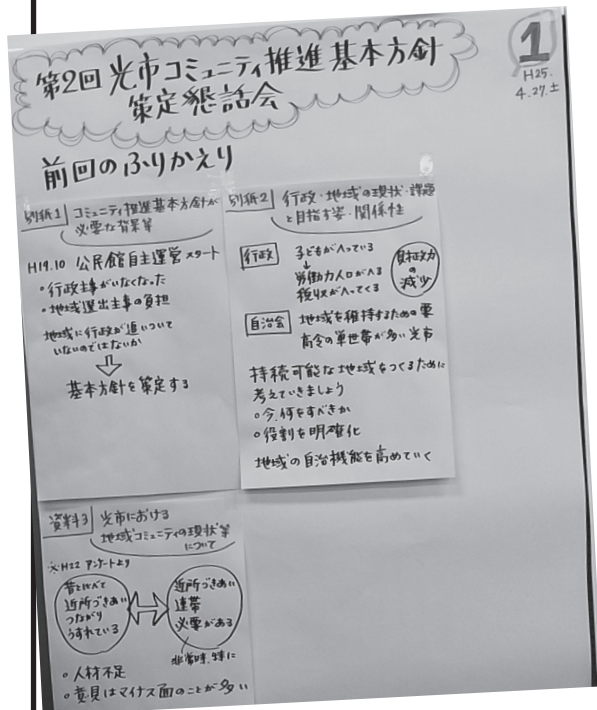 第2回 光市コミュニティ推進基本方針
策定懇話会
1
H25.
4.27.土
前回のふりかえり
別紙1 コミュニティ推進基本方針が
必要な背景等
H19.10 公民館自主運営スタート
・行政主事がいなくなった
・地域選出主事の負担
地域に行政が追いついて
いないのではないか
⇩
基本方針を策定する
別紙2 行政・地域の現状・課題
と目指す姿・関係性
行政 子どもがへっている
↓
労働力人口がへる
税収がへってくる
財政力の減少
自治会 地域を維持するための要
高令の単世帯が多い光市
持続可能な地域をつくるために
考えていきましょう
○今、何をすべきか
○役割を明確化
地域の自治機能を高めていく
資料3 光市における
地域コミュニティの現状等
について
※H22 アンケートより
昔と比べて
近所づきあい
つながり
うすれている
⇔
近所づきあい
連帯
必要がある
非常時.特に
・人材不足
・意見はマイナス面のことが多い